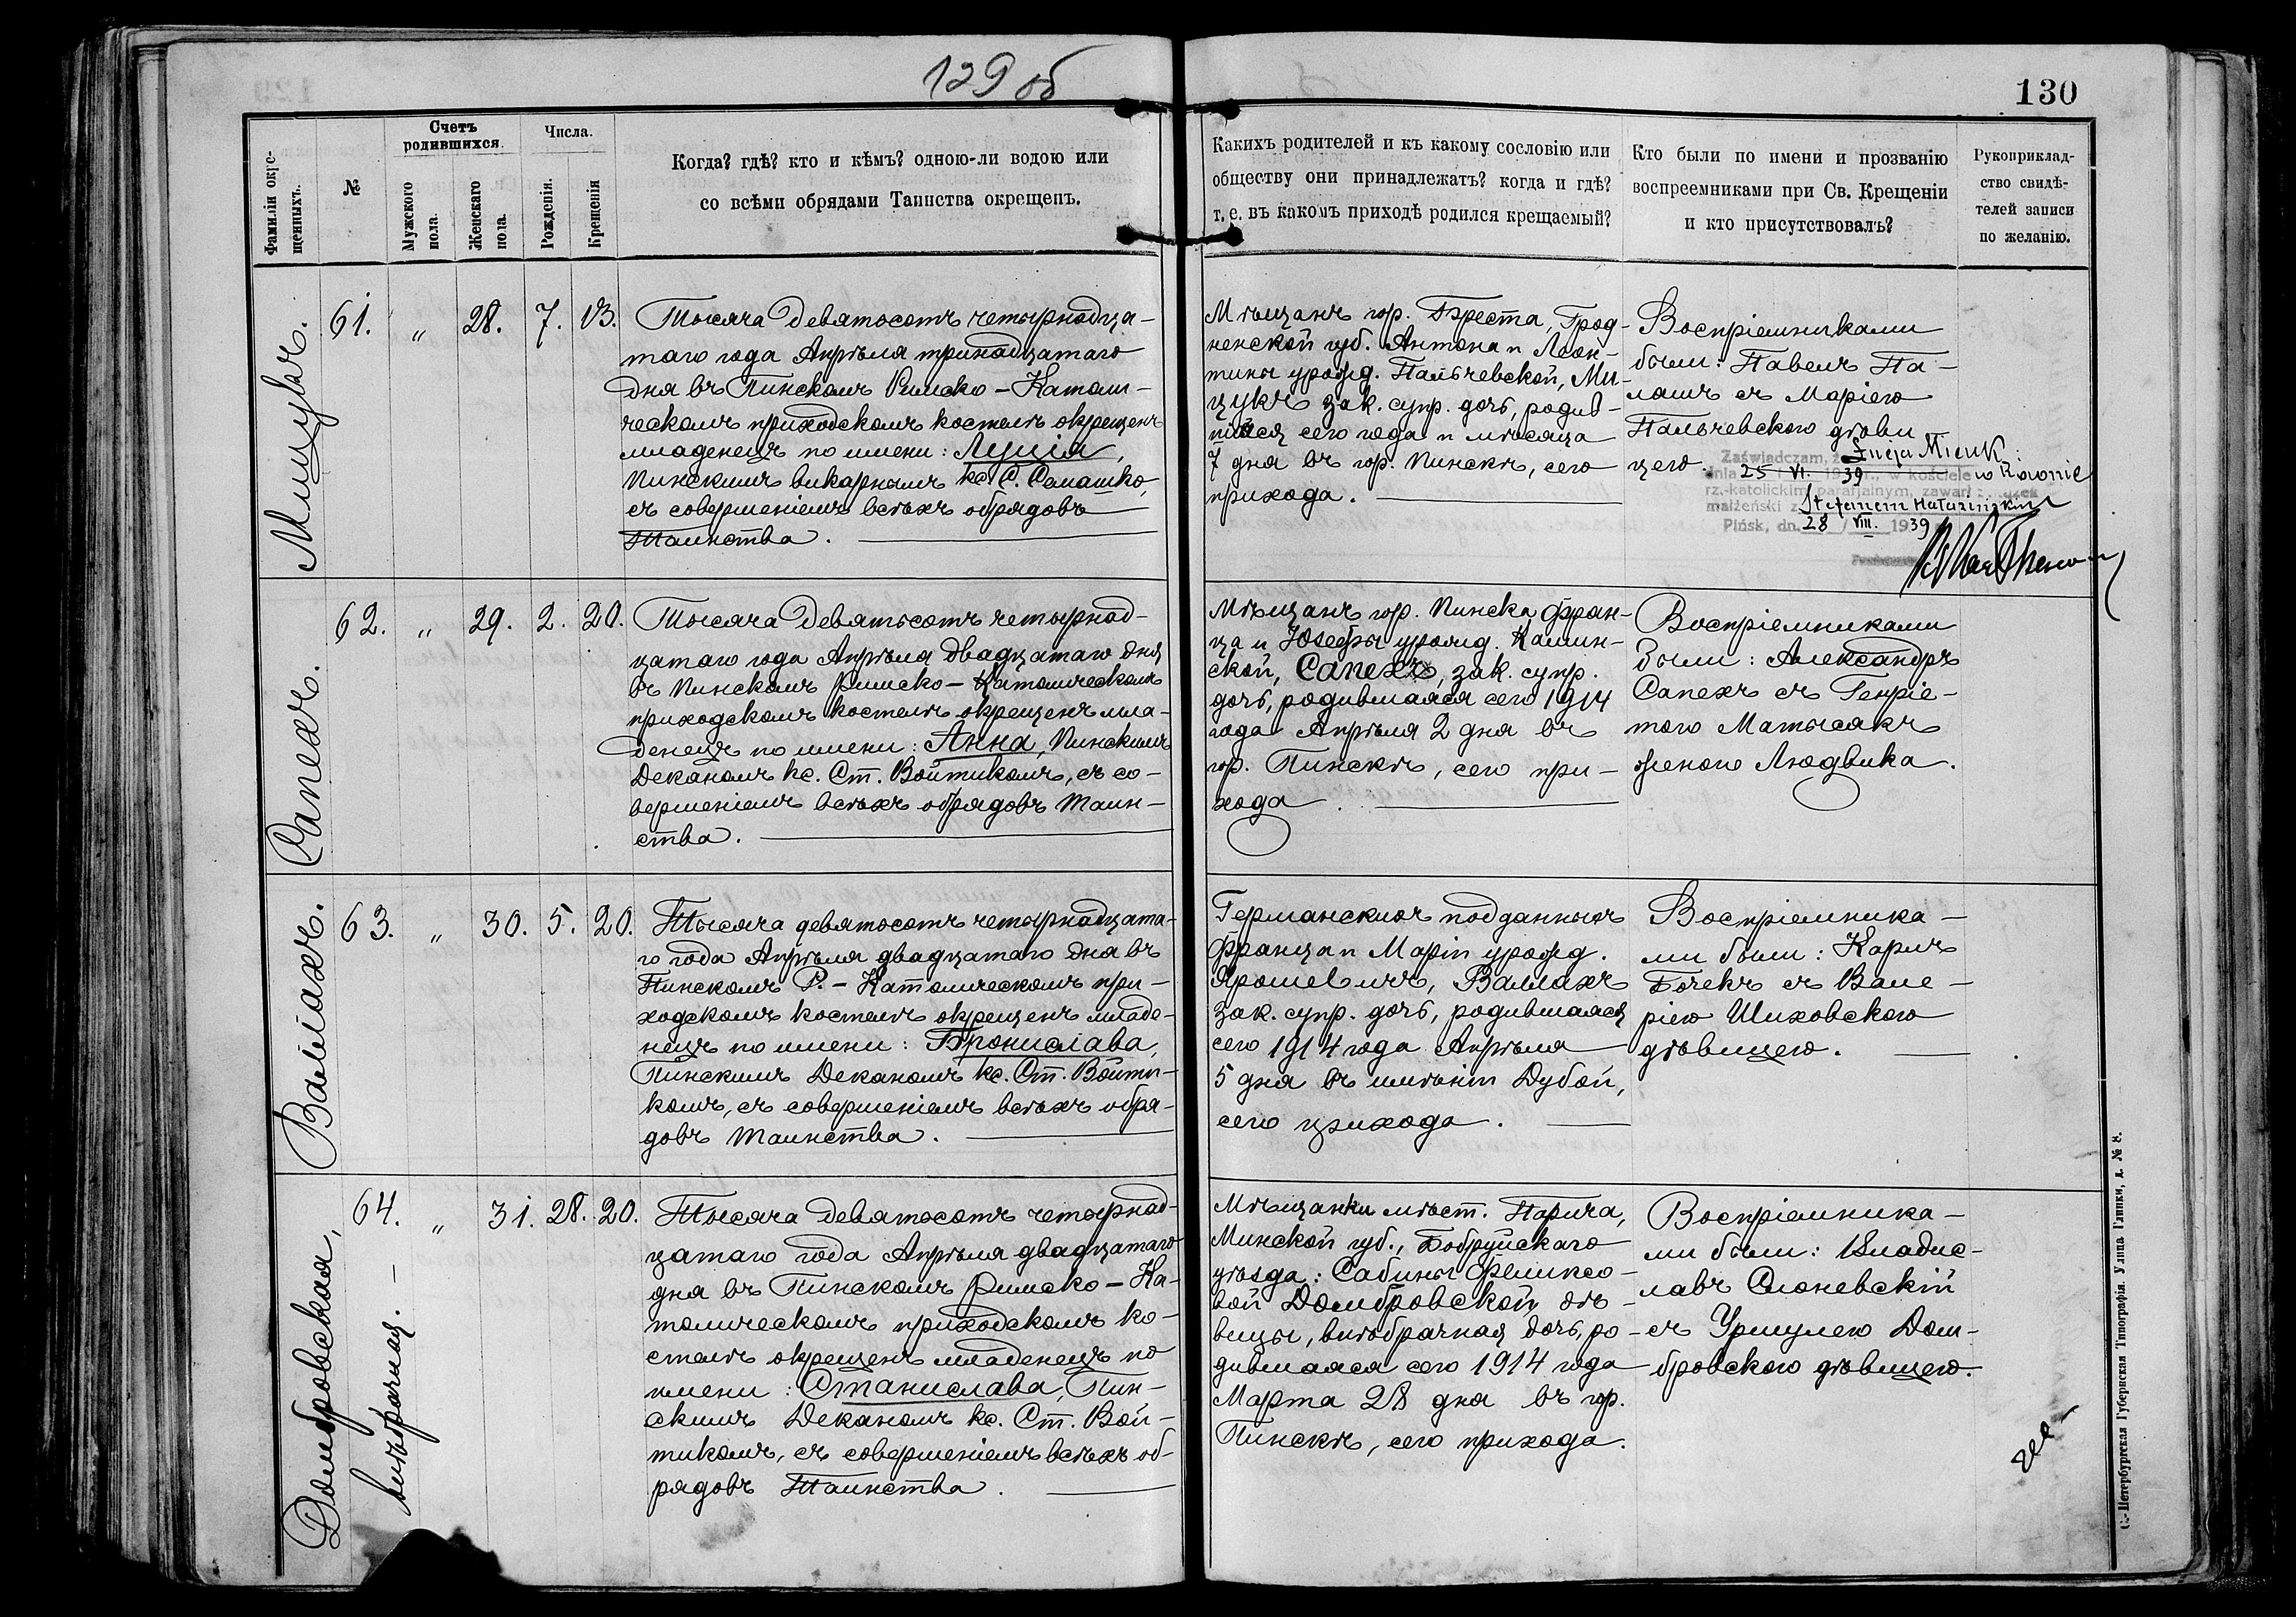 129 об
130
Фамиліи окре-
щенныхъ.
№
Счетъ
родившихся.
Мужского
пола.
Женскаго
пола.
Числа.
Рожденія.
Крещенія
Когда? гдѣ? кто и кѣмъ? одною-ли водою или
со всѣми обрядами Таинства окрещенъ.
Какихъ родителей и къ какому сословію или
обществу они принадлежатъ? когда и гдѣ?
т. е. въ какомъ приходѣ родился крещаемый?
Кто были по имени и прозванію
воспреемниками при Св. Крещеніи
и кто присутствовалъ?
Рукоприклад-
ство свидѣ-
телей записи
по желанію.
Мицукъ.
61. „ 28. 7. 13.
Тысяча девятьсотъ четырнадца-
таго года Апрѣля тринадцатаго
дня въ Пинскомъ Римско-Католи-
ческомъ приходскомъ костелѣ окрещенъ
младенецъ по имени: Луція,
Пинскимъ викарнымъ кс. С. Селашко,
съ совершеніемъ всѣхъ обрядовъ
Таинства.
Мѣщанъ гор. Бреста, Грод-
ненской губ. Антона и Леон-
тины урожд. Пальчевской, Ми-
цукъ зак. супр. дочь, родив-
шаяся сего года и мѣсяца
7 дня въ гор. Пинскѣ, сего
прихода.
Воспріемниками
были: Павелъ Па-
лашъ съ Маріею
Пальчевскою дѣви
цею.
Zaświadczam, że Łucja Micuk
dnia 25 VI. 1939 r., w kościele w Rownie
rz.-katolickim parafjalnym, zawarł związek
małżeński z Stefanem
Pińsk, dn. 28 / VIII. 1939
Сапехъ.
62. „ 29. 2. 20.
Тысяча девятьсотъ четырнад-
цатаго года Апрѣля двадцатаго дня
въ Пинскомъ Римско-Католическомъ
приходскомъ костелѣ окрещенъ мла-
денецъ по имени: Анна, Пинскимъ
Деканомъ кс. Ст. Войтикомъ, съ со-
вершеніемъ всѣхъ обрядовъ Таин-
ства.
Мѣщанъ гор. Пинска Фран-
ца и Юзефы урожд. Камин-
ской, Сапехъ, зак. супр.
дочь, родившаяся сего 1914
года Апрѣля 2 дня въ
гор. Пинскѣ, сего при-
хода.
Воспріемниками
были: Александръ
Сапехъ съ Генріе-
тою Матысякъ
женою Людвика.
Валлахъ.
63. „ 30. 5. 20.
Тысяча девятьсотъ четырнадцата-
го года Апрѣля двадцатаго дня въ
Пинскомъ Р.-Католическомъ при-
ходскомъ костелѣ окрещенъ младе-
нецъ по имени: Бронислава,
Пинскимъ Деканомъ кс. Ст. Войти-
комъ, съ совершеніемъ всѣхъ обря-
довъ Таинства.
Германскихъ подданныхъ
Франца и Маріи урожд.
Ярошевичъ, Валлахъ
зак. супр. дочь, родившаяся
сего 1914 года Апрѣля
5 дня въ имѣніи Дубой,
сего прихода.
Воспріемника-
ми были: Карлъ
Бочекъ съ Вале-
ріею Шиховскою
дѣвицею.
Домбровская,
внѣбрачная. -
64. „ 31. 28. 20.
Тысяча девятьсотъ четырнад-
цатаго года Апрѣля двадцатаго
дня въ Пинскомъ Римско-Ка-
толическомъ приходскомъ ко-
стелѣ окрещенъ младенецъ по
имени: Станислава, Пин-
скимъ Деканомъ кс. Ст. Вой-
тикомъ, съ совершеніемъ всѣхъ об-
рядовъ Таинства.
Мѣщанки мѣст. Парича,
Минской губ., Бобруйскаго
уѣзда: Сабины Феликсо-
вой Домбровской, дѣ-
вицы, внѣбрачная дочь, ро-
дившаяся сего 1914 года
Марта 28 дня въ гор.
Пинскѣ, сего прихода.
Воспріемника-
ми были: Владис-
лавъ Слоневскій
съ Уршулею Дом-
бровскою дѣвицею.
С.-Петербургская Губернская Типографія. Улица Глинки, д. № 8.